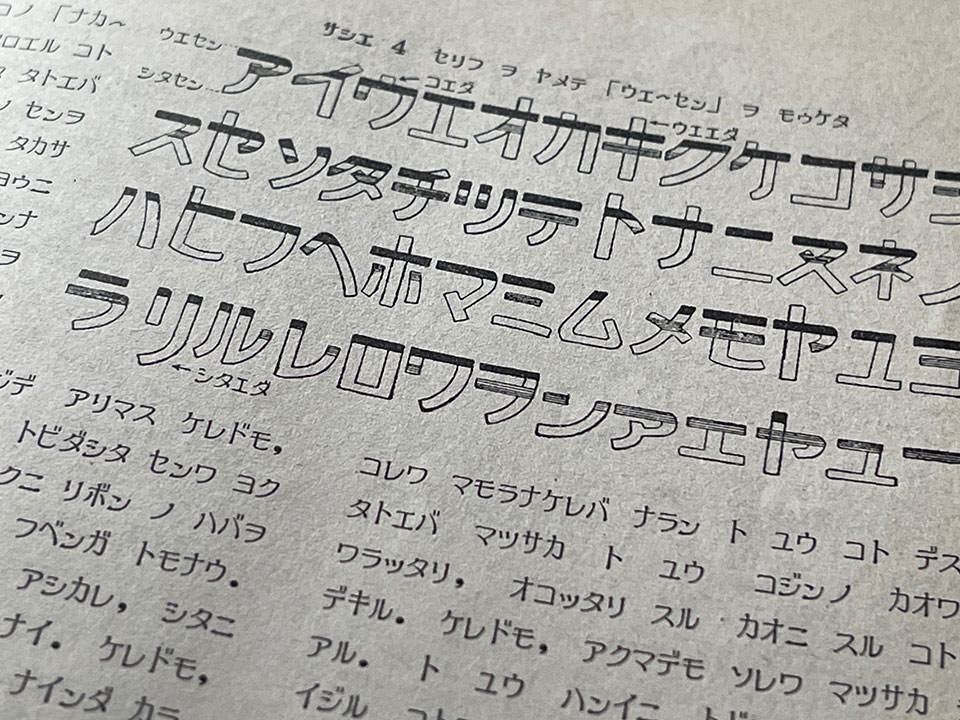 コノ 「ナカ〜
ロエル コト
タトエバ
センヲ
タカサ
ヨウニ
ンナ
ヲ
サシエ 4 セリフ ヲ ヤメテ 「ウエ〜セン」 ヲ モゥケタ
ウエセン
シタセン
←コエダ
←ウエエダ
アイウエオカキクケコサシ
スセソタチツテトナニヌネノ
ハヒフヘホマミムメモヤユヨ
ラリルレロワヲンアエヤユー
←シタエダ
ジデ アリマス ケレドモ,
トビダシタ センワ ヨク
クニ リボン ノ ハバヲ
フベンガ トモナウ.
アシカレ, シタニ
ナイ. ケレドモ,
ナインダ カラ
コレワ マモラナケレバ ナラン ト ユウ コト デス
タトエバ マツサカ ト ユウ コジンノ カオワ
ワラッタリ, オコッタリ スル カオニ スル コト
デキル. ケレドモ, アクマデモ ソレワ マツサカ
アル. ト ユウ ハンイニ
イジル